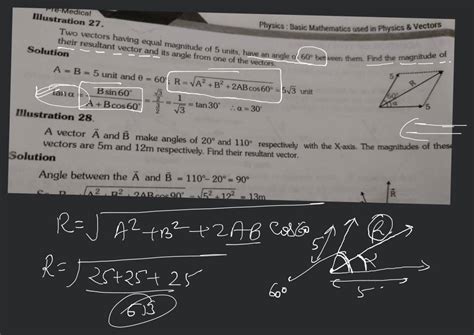 Pre-Medical
Illustration 27.
Physics : Basic Mathematics used in Physics & Vectors
Two vectors having equal magnitude of 5 units, have an angle of 60° between them. Find the magnitude of
their resultant vector and its angle from one of the vectors.
Solution
A = B = 5 unit and θ = 60° R = √A² + B² + 2AB cos60° = 5√3 unit
tan α = B sin60° / A + B cos60° = = 1 / √3 = tan30° ∴ α = 30°
5
R
60°
α
5
Illustration 28.
A vector A⃗ and B⃗ make angles of 20° and 110° respectively with the X-axis. The magnitudes of these
vectors are 5m and 12m respectively. Find their resultant vector.
Solution
Angle between the A⃗ and B⃗ = 110°– 20° = 90°
√A² + B² + 2AB cos90° = √5² + 12² = 13m
R⃗
R = √A² + B² + 2AB cos60
R = √25+25+25
5
R
60°
5